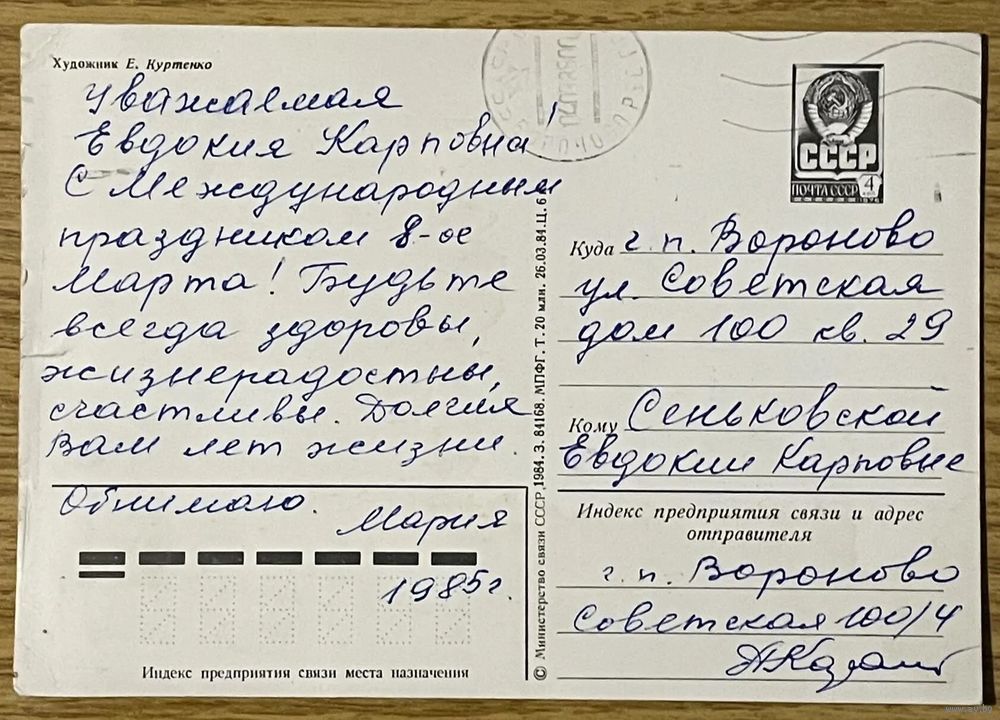 Художник Е. Куртенко
Уважаемая
Евдокия Карповна!
С Международным
праздником 8-ое
Марта! Будьте
всегда здоровы,
жизнерадостны,
счастливы. Долгих
Вам лет жизни.
Обнимаю.
Мария
1985г.
Индекс предприятия связи места назначения
© Министерство связи СССР, 1984. З. 84168. МПФГ. Т. 20 млн. 26.03.84. Ц. 6
СССР
ПОЧТА СССР 4
1976
Куда г. п. Вороново
ул. Советская
дом 100 кв. 29
Кому Сеньковской
Евдокии Карповне
Индекс предприятия связи и адрес
отправителя
г. п. Вороново
Советская 100/4